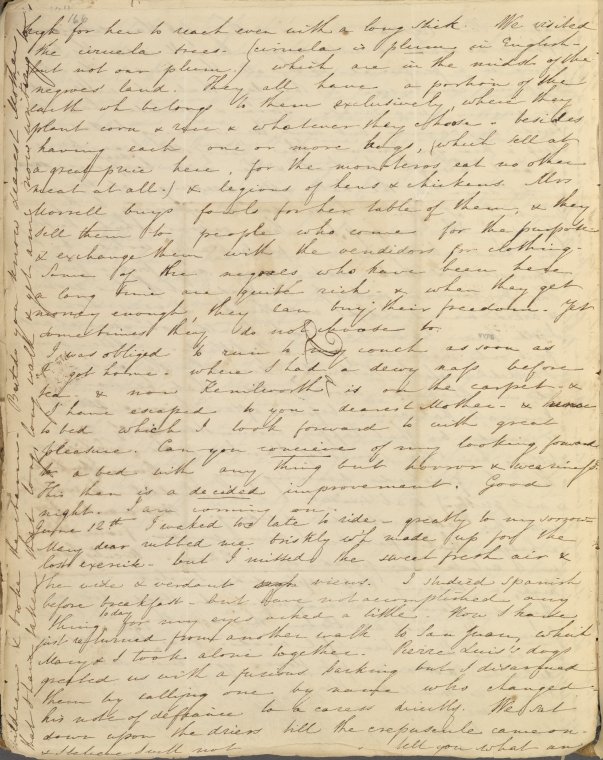 166
high for her to reach even with a long stick. We visited
the ciruela trees. (ciruela is plum in English -
but not our plum.) which are in the midst of the
negroes land. They all have a portion of the
earth wh. belongs to them exclusively, where they
plant corn & rice & whatever they choose - besides
having each one or more hogs, (which sell at
a great price here, for the monteros eat no other
meat at all.) & legions of hens & chickens. Mrs
Morrell buys fowls for her table of them, & they
sell them to people who come for the purpose
& exchange them with the vendidors for clothing -
Some of the negroes who have been here
a long time are quite rich - & when they get
money enough, they can buy their freedom. Yet
sometimes they do not choose to.
I was obliged to run to my couch as soon as
I got home - where I had a dewy nap before
tea - & now Kenilworth is on the carpet - &
I have escaped to you - dearest Mother - &
to bed which I look forward to with great
pleasure. Can you conceive of my looking forward
to a bed with any thing but horror & weariness
This then is a decided improvement. Good
night. I am coming on.
June 12th I waked too late to ride - greatly to my sorrow
Mary dear rubbed me briskly wh made up for the
lost exercise - but I missed the sweet fresh air &
the wide & verdant views. I studied Spanish
before breakfast - but have not accomplished any
thing today for my eyes ached a little. Now I have
just returned from another walk to San Juan, which
Mary & I took alone together. Pierre Luis's dogs
greeted us with a furious barking but I disarmed
them by calling one by name who changed
his note of defiance to a caress directly. We sat
down upon the driers till the crepuscule came on -
& I will not tell you what an